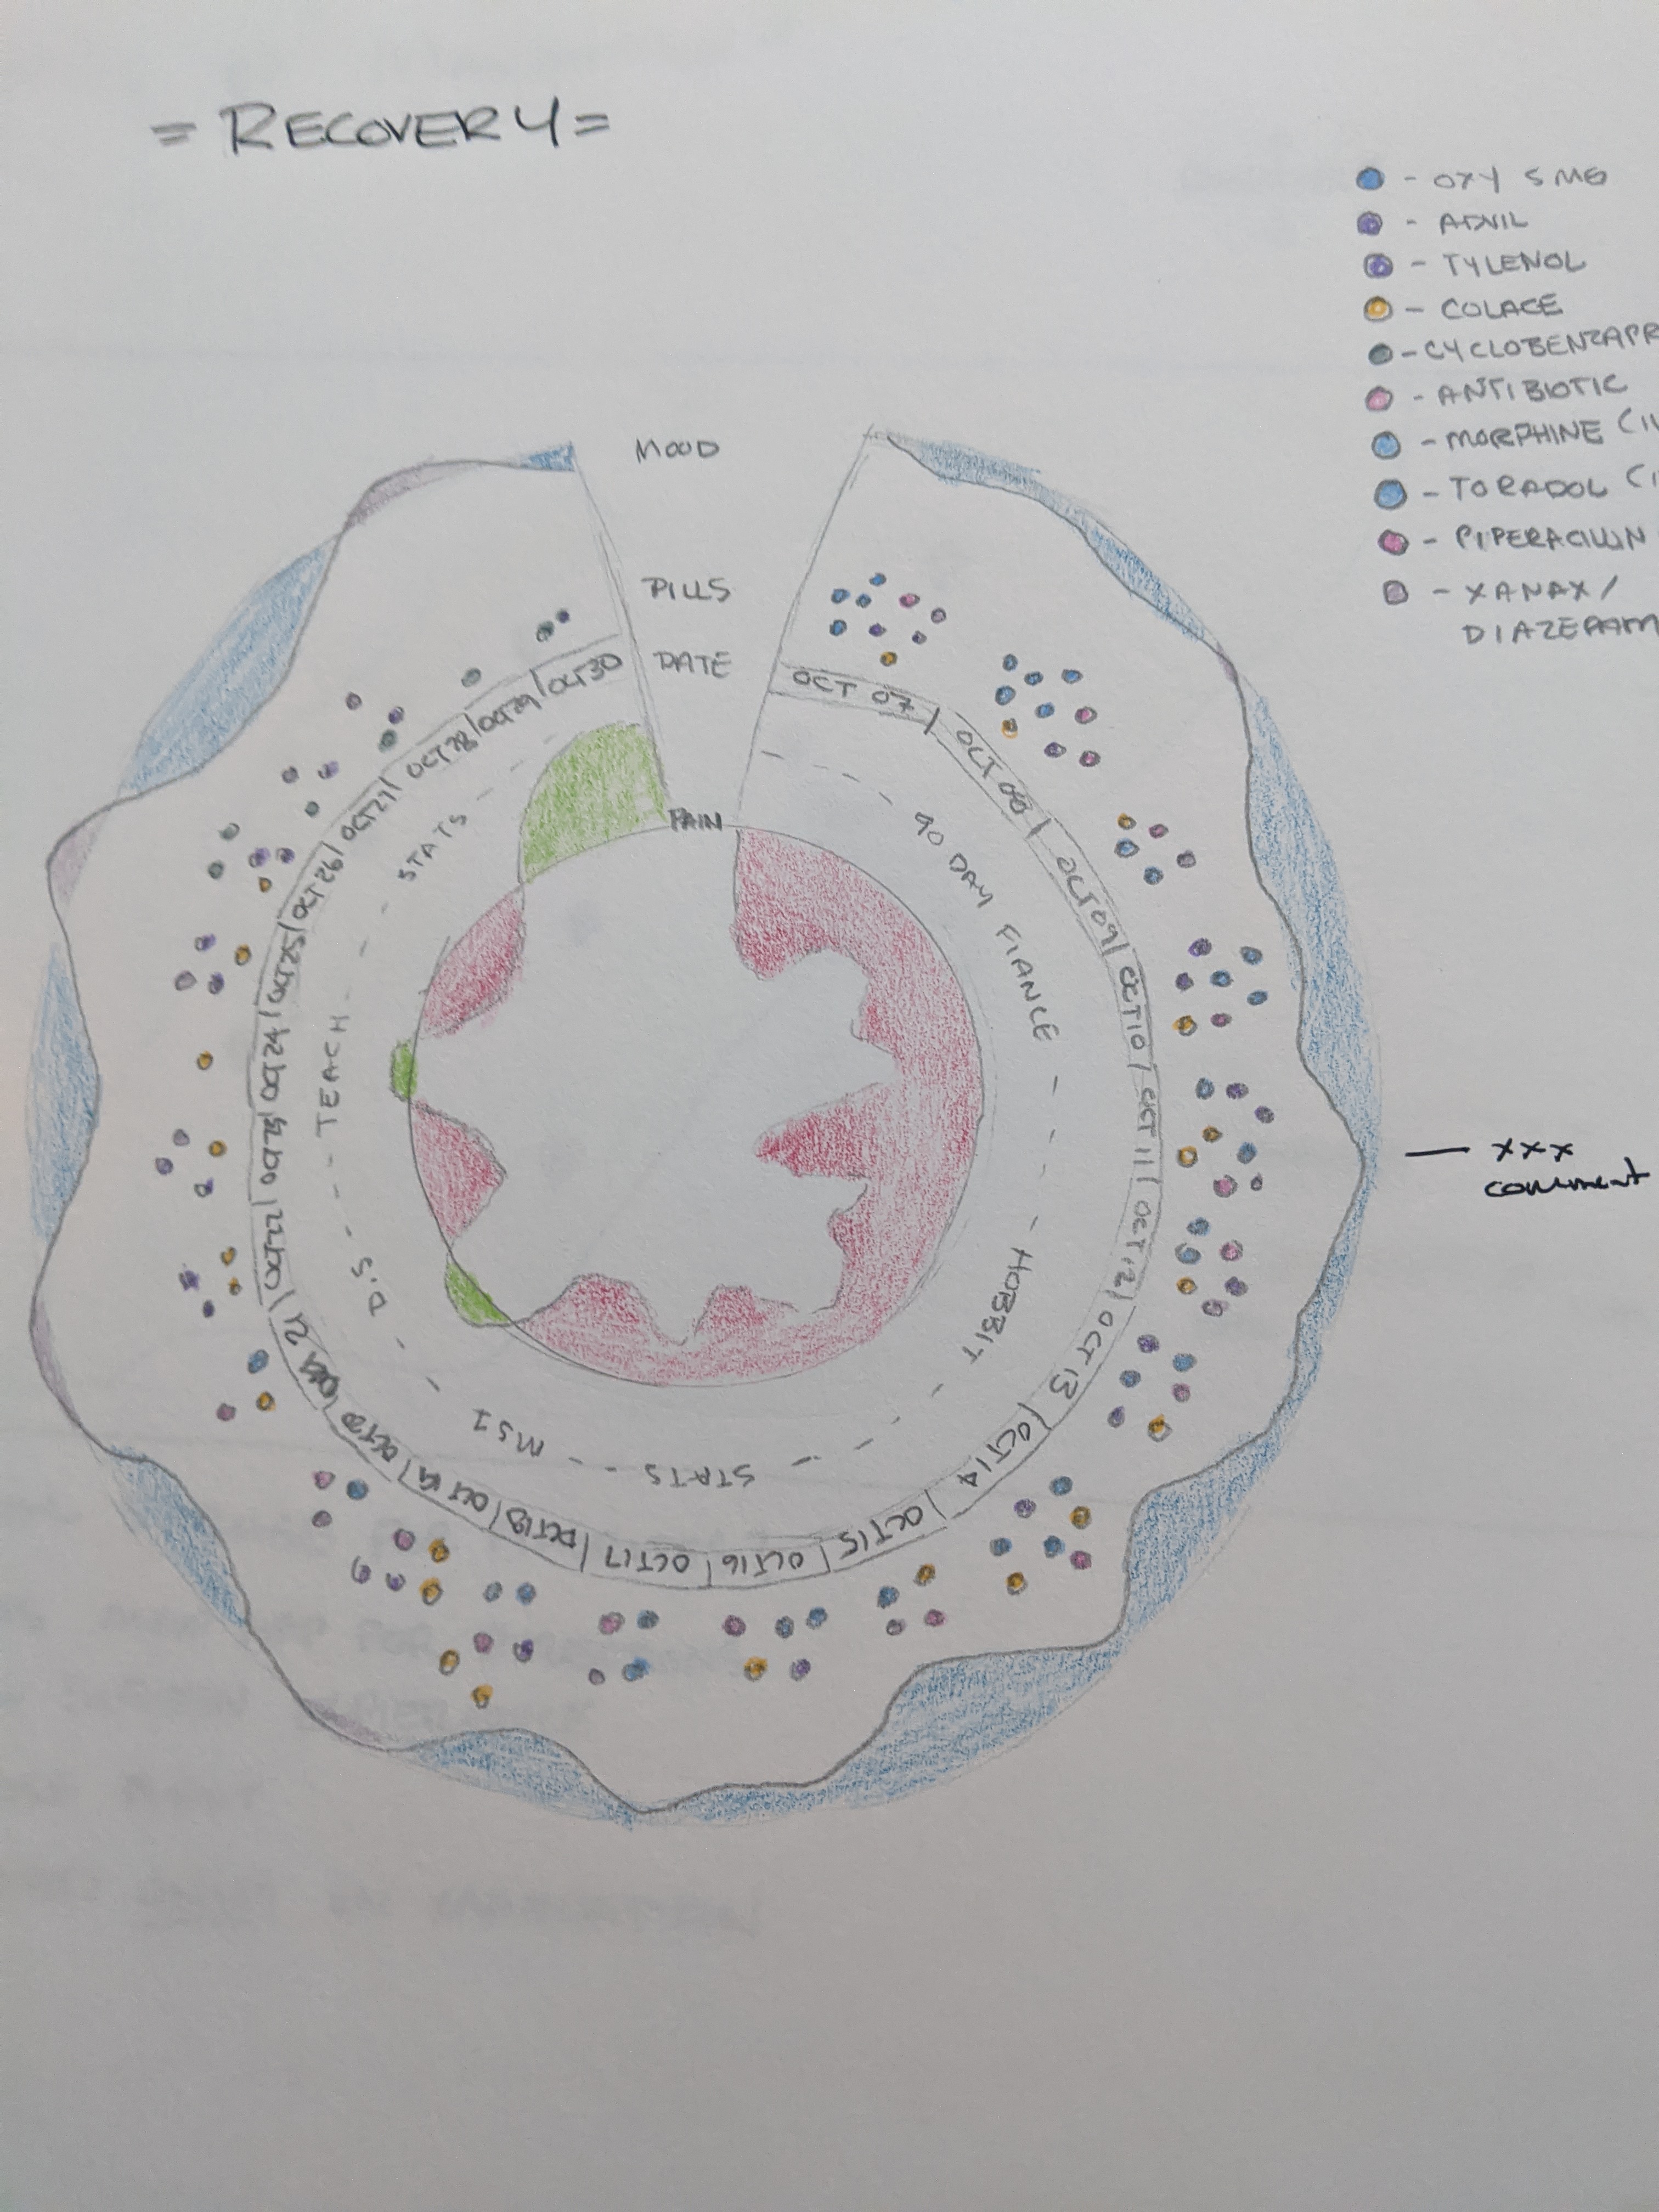 = RECOVERY =
- OXY 5MG
- ADVIL
- TYLENOL
- COLACE
- CYCLOBENZAPR
- ANTIBIOTIC
- MORPHINE (IV
- TORADOL (I
- PIPERACILLIN
- XANAX/
DIAZEPAM
MOOD
PILLS
DATE
PAIN
OCT 07
OCT 08
OCT 09
OCT 10
OCT 11
OCT 12
OCT 13
OCT 14
OCT 15
OCT 16
OCT 17
OCT 18
OCT 19
OCT 20
21
OCT 22
OCT 23
OCT 24
OCT 25
OCT 26
OCT 27
OCT 28
OCT 29
OCT 30
90 DAY FIANCE
HOBBIT
STATS
MS1
D.S.
TEACH
STATS
— xxx
comment